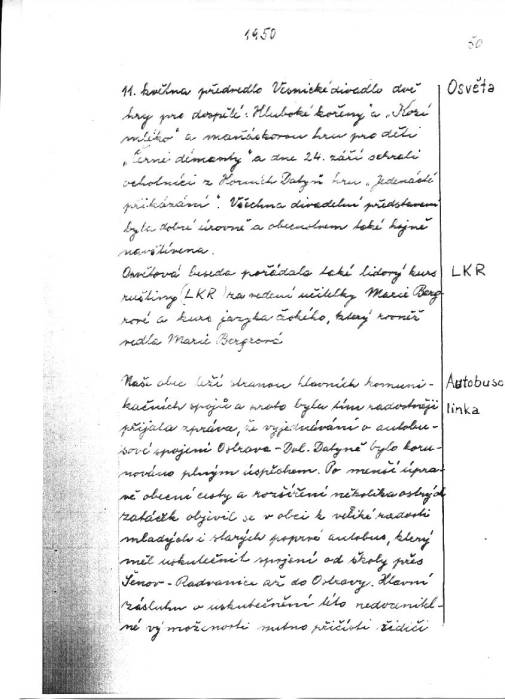 1950
50
11. května předvedlo Vesnické divadlo dvě
hry pro dospělé: „Hluboké kořeny" a „Kozí
mléko" a maňáskovou hru pro děti
„Černé démanty" a dne 24. září sehráli
ochotníci z Horních Datyň hru „Jedenácté
přikázání". Všechna divadelní představení
byla dobré úrovně a obecenstvem také hojně
navštívena.
Osvětová beseda pořádala také lidový kurs
ruštiny (LKR) za vedení učitelky Marie Berg-
rové a kurs jazyka českého, který rovněž
vedla Marie Bergrová
Naše obec leží stranou hlavních komuni-
kačních spojů a proto byla tím radostněji
přijata zpráva, že vyjednávání o autobu-
sové spojení Ostrava - Dol. Datyně bylo koru-
nováno plným úspěchem. Po menší úpra-
vě obecní cesty a rozšíření několika ostrých
zatáček objevil se v obci k veliké radosti
mladých i starých poprvé autobus, který
měl uskutečnit spojení od školy přes
Šenov - Radvanice až do Ostravy. Hlavní
zásluhu o uskutečnění této nedocenitel-
né vymoženosti nutno přičísti řidiči
Osvěta
LKR
Autobuso
linka